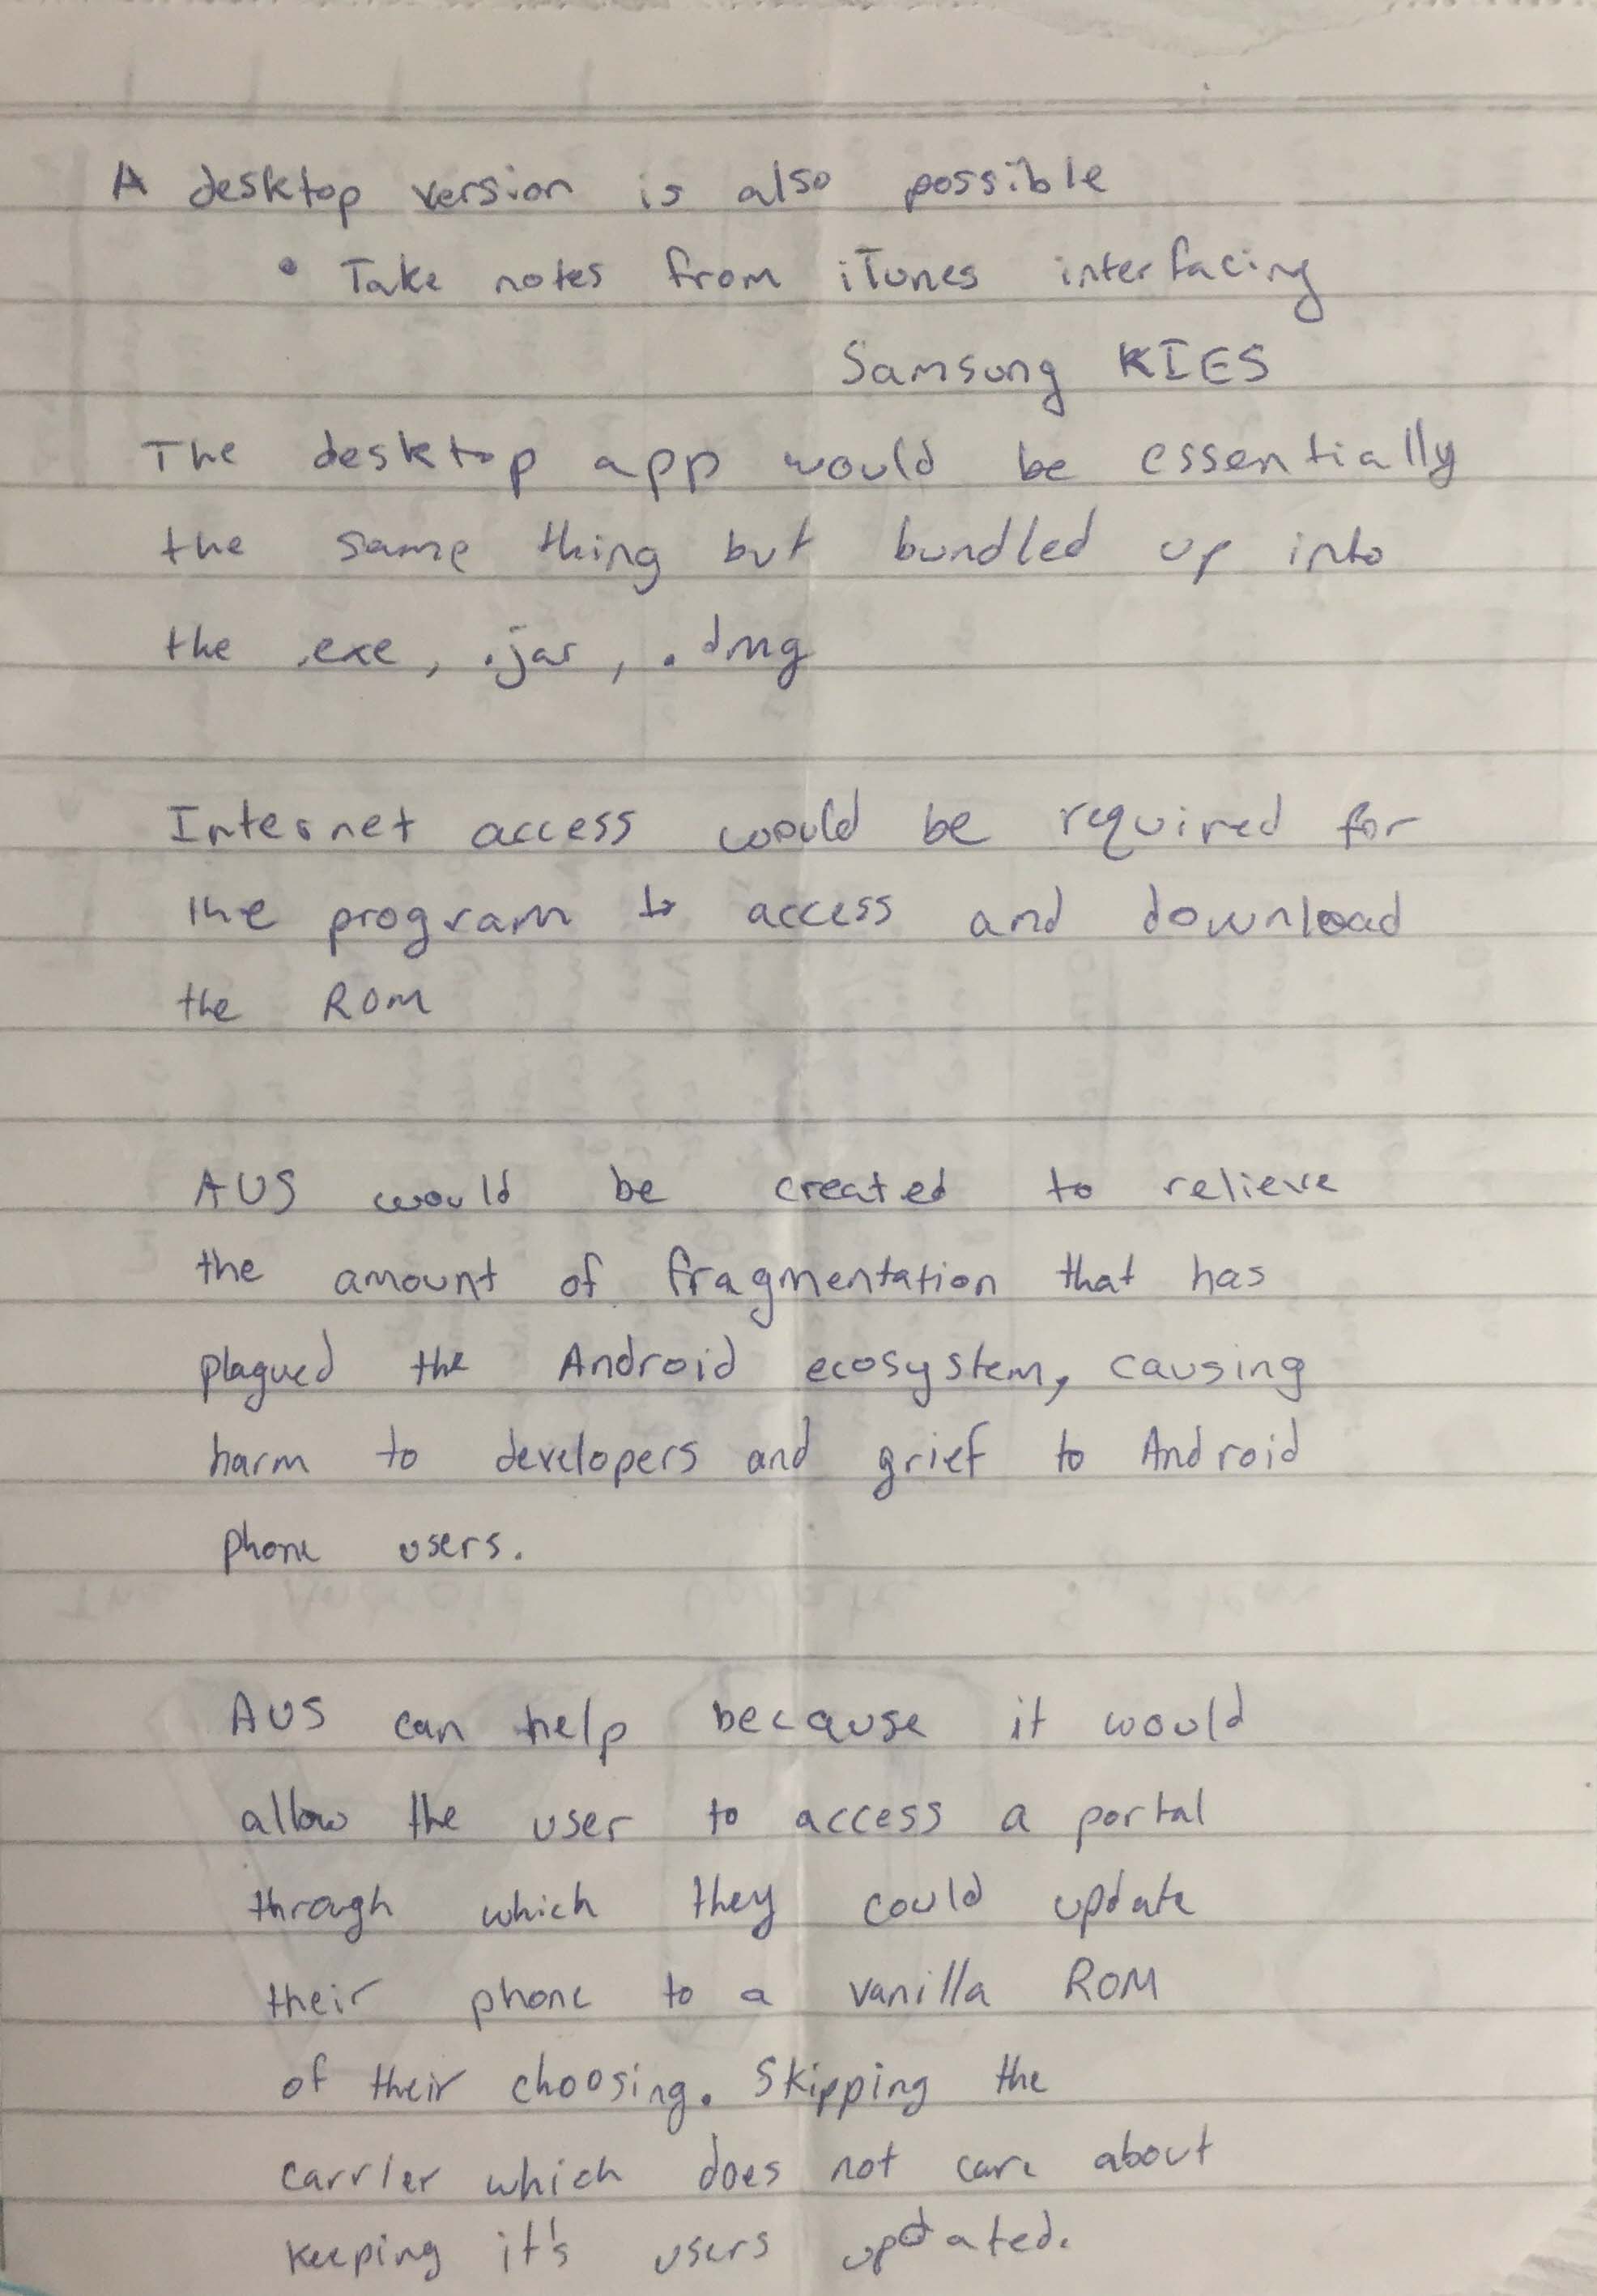 A desktop version is also possible
• Take notes from iTunes interfacing
Samsung KIES
The desktop app would be essentially
the same thing but bundled up into
the .exe, .jar, .dmg
Internet access would be required for
the program to access and download
the ROM
AUS would be created to relieve
the amount of fragmentation that has
plagued the Android ecosystem, causing
harm to developers and grief to Android
phone users.
AUS can help because it would
allow the user to access a portal
through which they could update
their phone to a vanilla ROM
of their choosing. Skipping the
carrier which does not care about
keeping it's users updated.